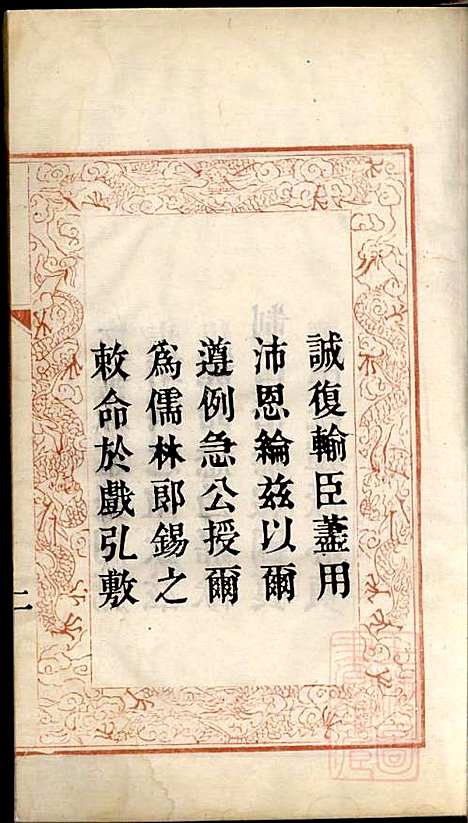 誠復輸臣藎用
沛恩綸兹以爾
遵例急公授爾
為儒林郎錫之
敕命於戲引敷
二